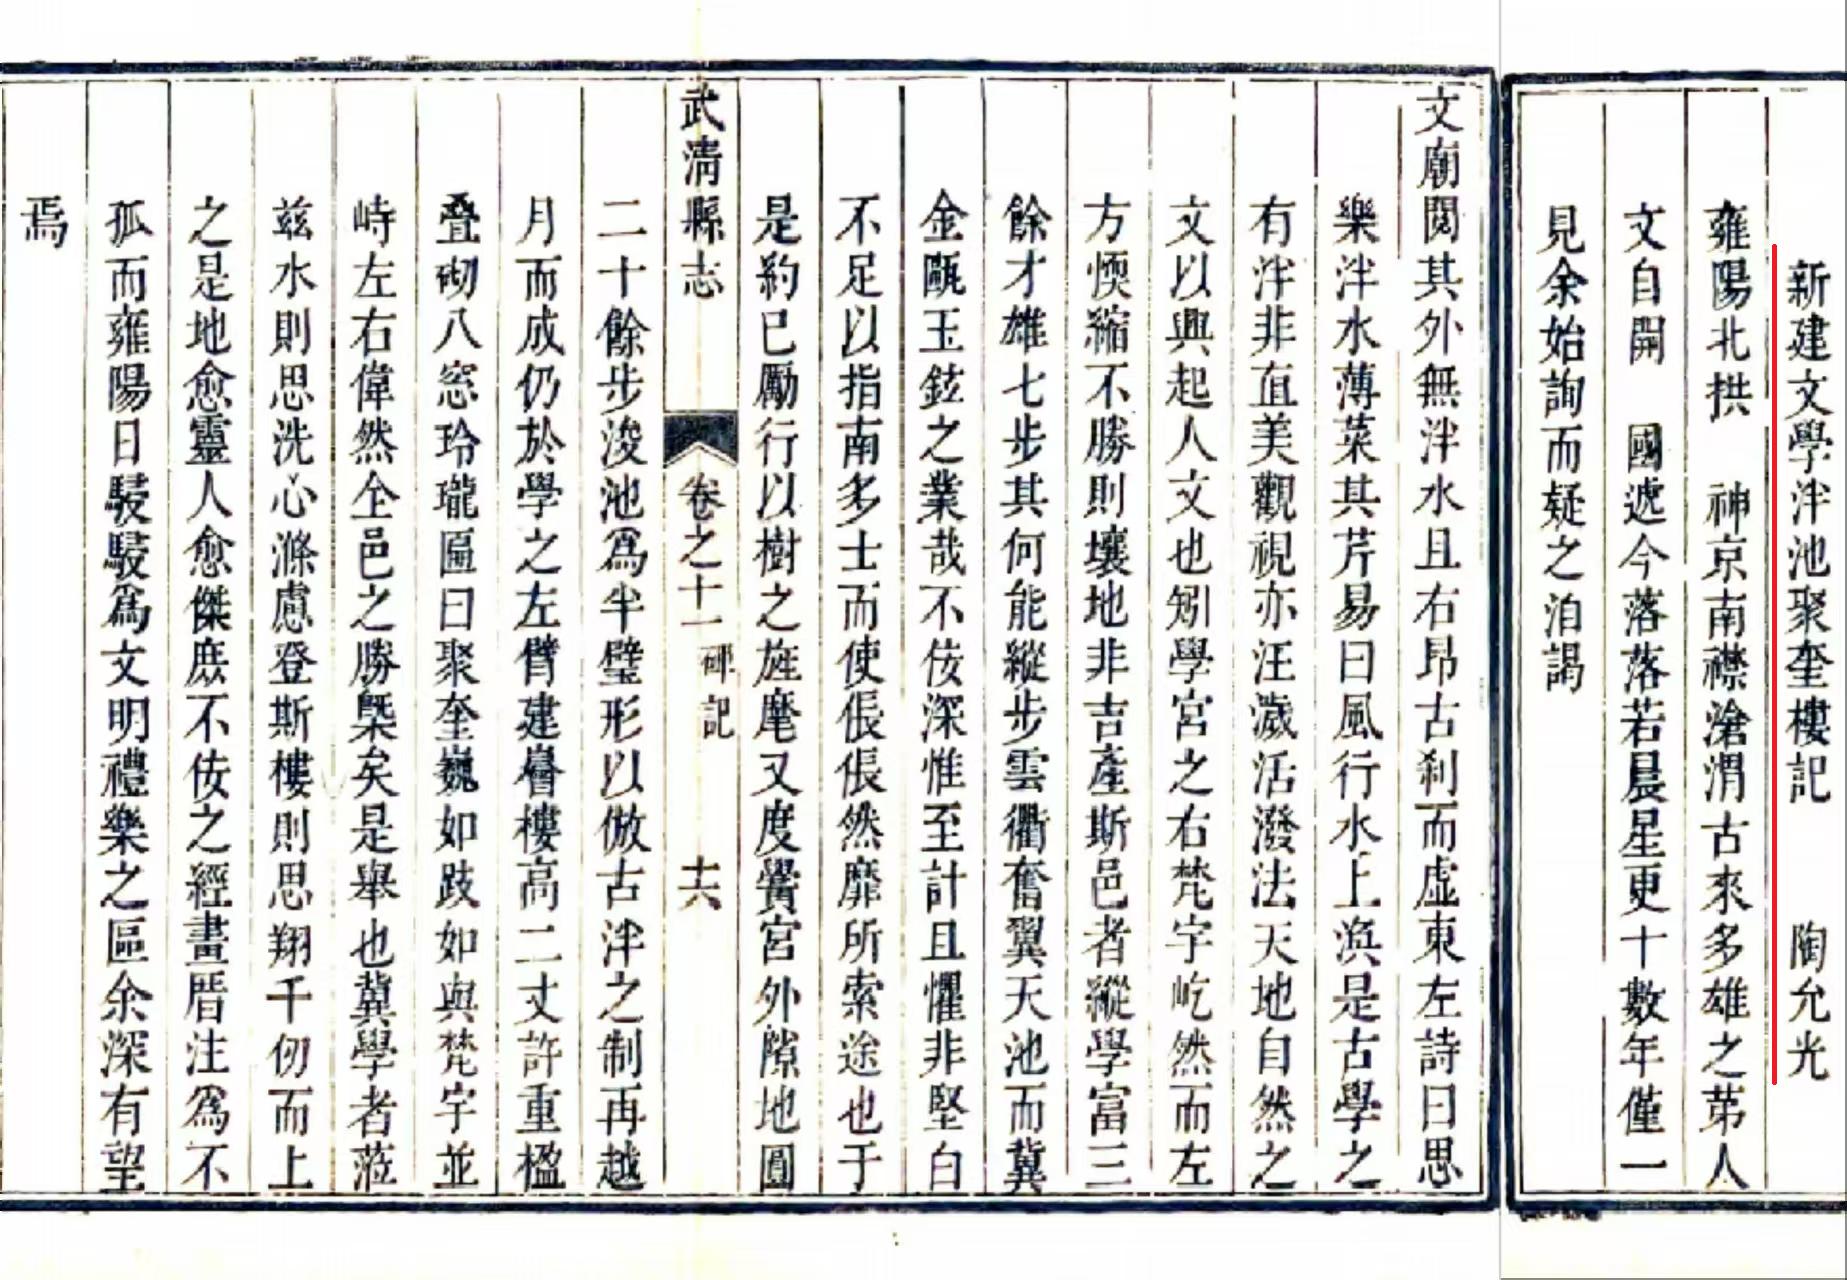 新建文學泮池聚奎樓記 陶允光
雍陽北拱 神京南襟滄渭古來多雄之第人
文自開 國遞今落落若晨星更十數年僅一
見余始詢而疑之洎謁
文廟閱其外無泮水且右昂古剎而虛東左詩曰思
樂泮水薄菜其芹易曰風行水上渙是古學之
有泮非直美觀視亦汪濊活潑法天地自然之
文以興起人文也矧學宮之右梵宇屹然而左
方愞縮不勝則壤地非吉產斯邑者縱學富三
餘才雄七步其何能縱步雲衢奮翼天池而冀
金甌玉鉉之業哉不佞深惟至計且懼非堅白
不足以指南多士而使倀倀然靡所索途也于
是約已勵行以樹之旌麾又度黌宮外隙地圓
武清縣志 卷之十一 碑記 十六
二十餘步浚池爲半璧形以倣古泮之制再越
月而成仍於學之左臂建層樓高二丈許重楹
疊砌八窓玲瓏匾曰聚奎巍如跂如與梵宇並
峙左右偉然仝邑之勝槩矣是舉也冀學者蒞
兹水則思洗心滌慮登斯樓則思翔千仞而上
之是地愈靈人愈傑庶不佞之經畫厝注爲不
孤而雍陽日駸駸爲文明禮樂之區余深有望
焉